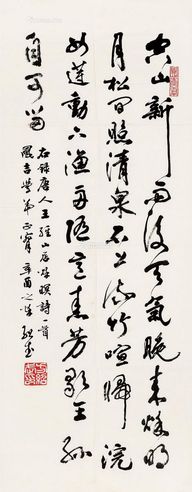 空山新雨後天氣晚來秋明
月松間照清泉石上流竹喧歸浣
女蓮動下漁舟隨意春芳歇王孫
自可留
右錄唐人王維山居秋暝詩一首
吉 弟正 辛酉之